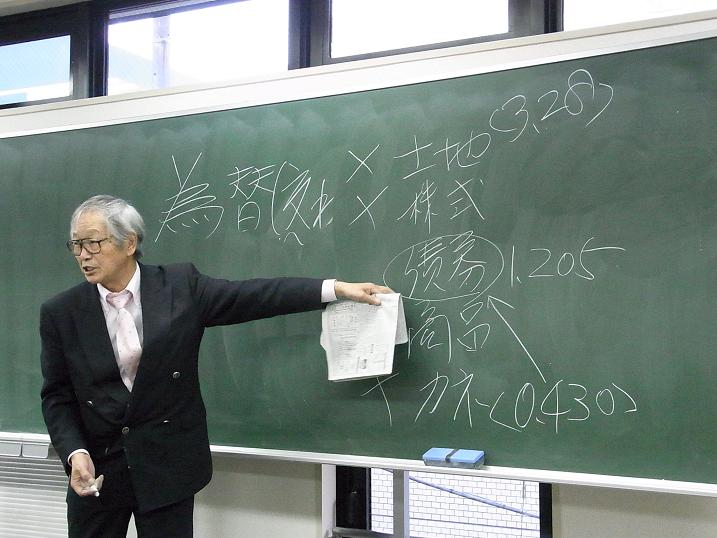 為替 × 土地 (3.28)
× 株式
債券 1.205
商品
× カネ (0.430)